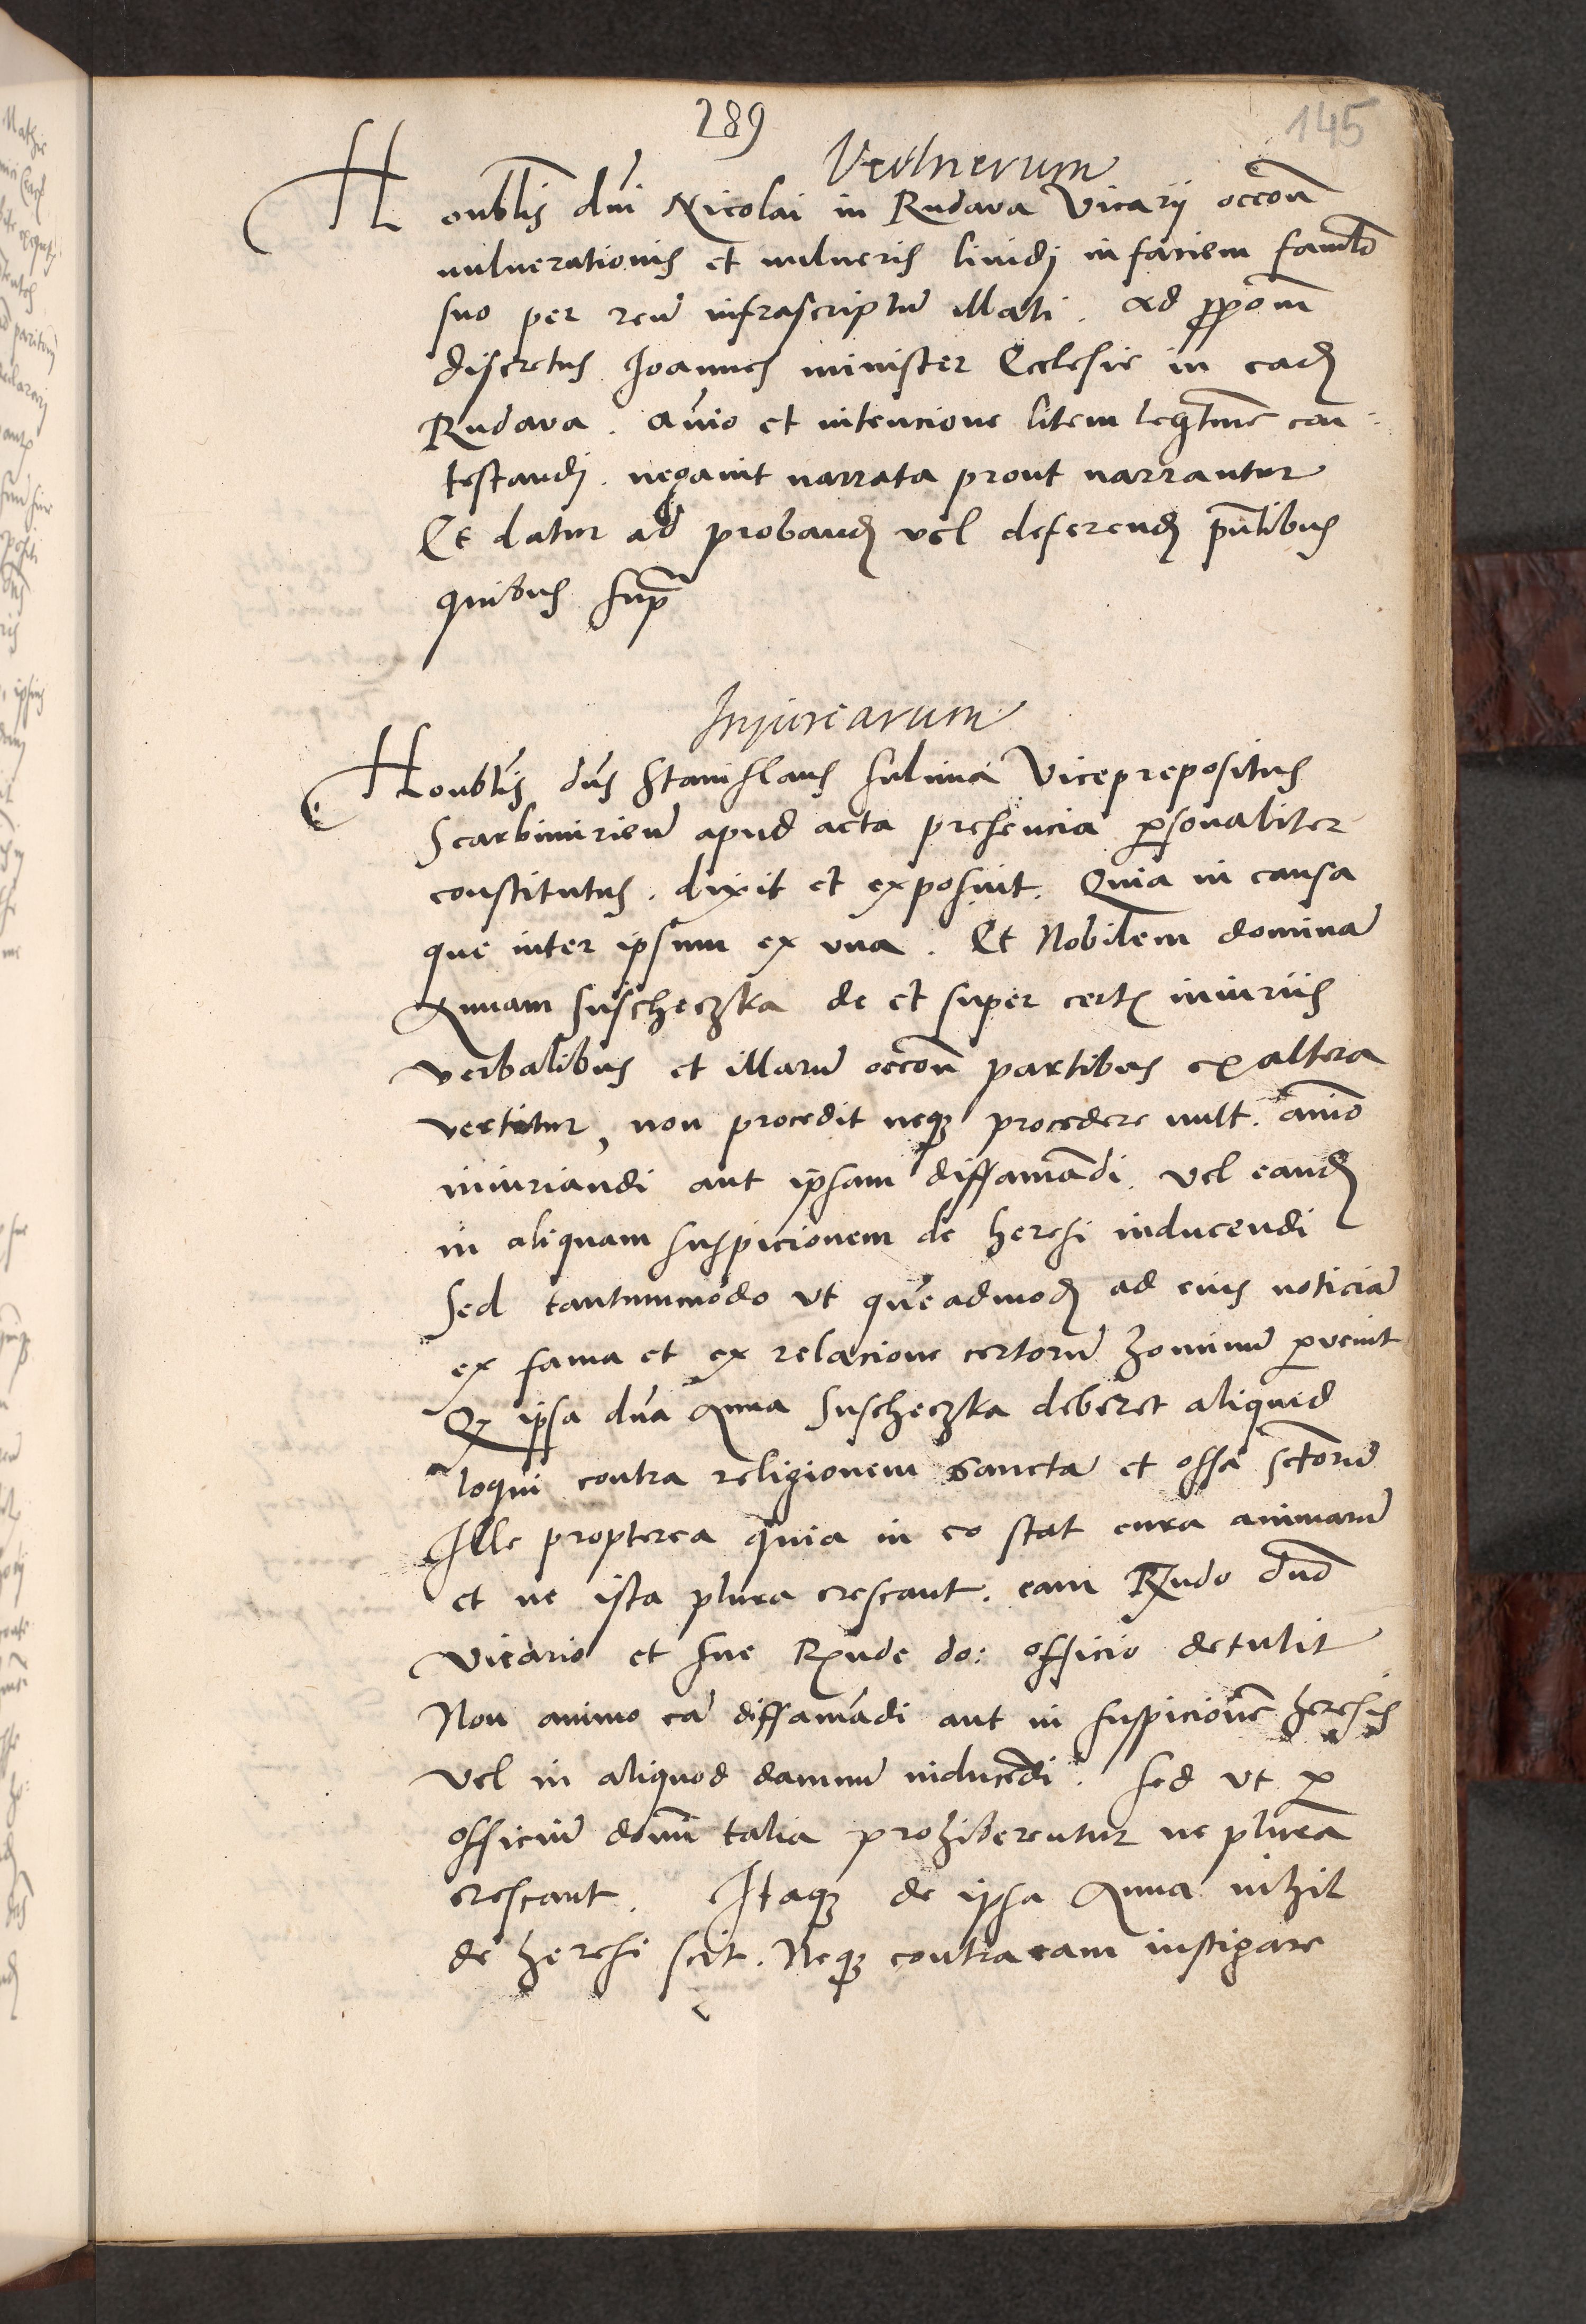 289
145
Vulnerum
Honblis dni Nicolai in Rudava Vicarij occon̄
vulnerationis et vulneris liuidj in faciem famlo
suo per reū infrascriptū illati. ad ꝓpoōm
discretus Joannes minister Ecclesie in eadꝫ
Rudava. aīo et intencione litem legtime con-
testandj. negauit narrata prout narrantur
Et datur ad probandꝫ vel deferendꝫ pn̄tibus
quibus supꝰ
Injuriarum
Honblis dns Stanislaus Sulima Viceprepositus
Scarbimirieñ apud acta presencia ꝑsonaliter
constitutus. dixit et exposuit. Quia in causa
que inter ipsum ex vna. Et Nobilem dominā
Annam Suscheczka de et super certꝭ iniuriis
verbalibus et illarū occon̄ partibus ex altera
vertitur, non procedit neqꝫ procedere vult. aīmo
iniuriandi aut ipsam diffamādi. vel eandꝫ
in aliquam suspicionem de heresi inducendi
Sed tantummodo vt quēadmodꝫ ad eius noticiā
ex fama et ex relacione certorū hominū ꝑvenit
Qꝫ ipsa dna Anna Suscheczka deberet aliquid
loqui contra religionem sanctā et ossa sctorū
Ille propterea quia in eo stat cura animarū
et ne ista plura crescant. eam Rndo dno
Vicario et sue Rnde do: officio detulit
Non animo eā diffamādi aut in suspicionē heresis
vel in aliquod damnū inducēdi. Sed vt ꝑ
officiū domī talia prohiberentur ne plura
crescant. Itaqꝫ de ipsa Anna nihil
de heresi scit. Neqꝫ contra eam instigare